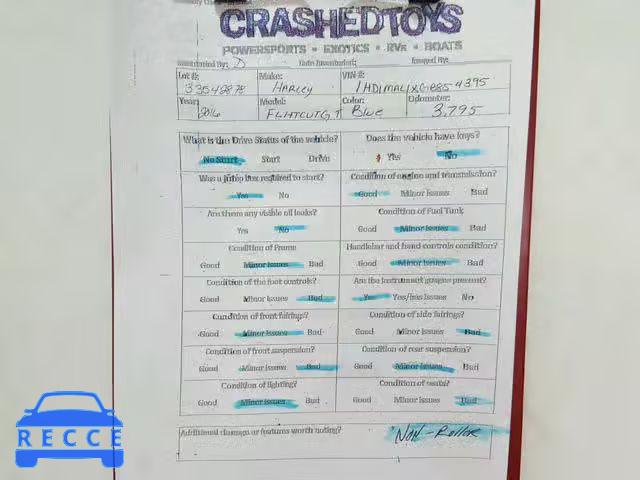 CRASHEDTOYS
POWERSPORTS • EXOTICS • RVs • BOATS
Inventoried By: D Date Inventoried: Keyed By:
Lot #: Make: VIN #:
33542878 HARLEY
Year: Model: Color: Odometer:
2016 FLHTCUTG T Blue 3,795
What is the Drive Status of the vehicle? Does the vehicle have keys?
No Start Start Drive Yes No
Was a jump box required to start? Condition of engine and transmission?
Yes No Good Minor Issues Bad
Are there any visible oil leaks? Condition of Fuel Tank
Yes No Good Minor Issues Bad
Condition of Frame Handlebar and hand controls condition?
Good Minor Issues Bad Good Minor Issues Bad
Condition of the foot controls? Are the instrument gauges present?
Good Minor Issues Bad Yes Yes/has Issues No
Condition of front fairings? Condition of side fairings?
Good Minor Issues Bad Good Minor Issues Bad
Condition of front suspension? Condition of rear suspension?
Good Minor Issues Bad Good Minor Issues Bad
Condition of lighting? Condition of seats?
Good Minor Issues Bad Good Minor Issues Bad
Additional damage or features worth noting? NON-Roller
RECCE